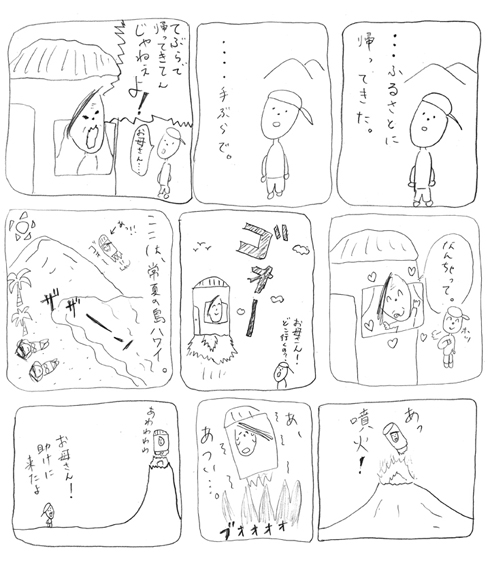 ・・・ふるさとに
帰ってきた。
・・・・手ぶらで。
てぶらで
帰ってきてん
じゃねえ
よ！
お母さん…
なんちゃって。
ホッ
ゴオー
お母さん！
どこ行くのっ？
ここは、常夏の島ハワイ。
ザ
ザ
ーン
あっ
噴火！
あ、
あつい…。
ブオオオオ
あわわわわ
お母さん！
助けに
来たよ